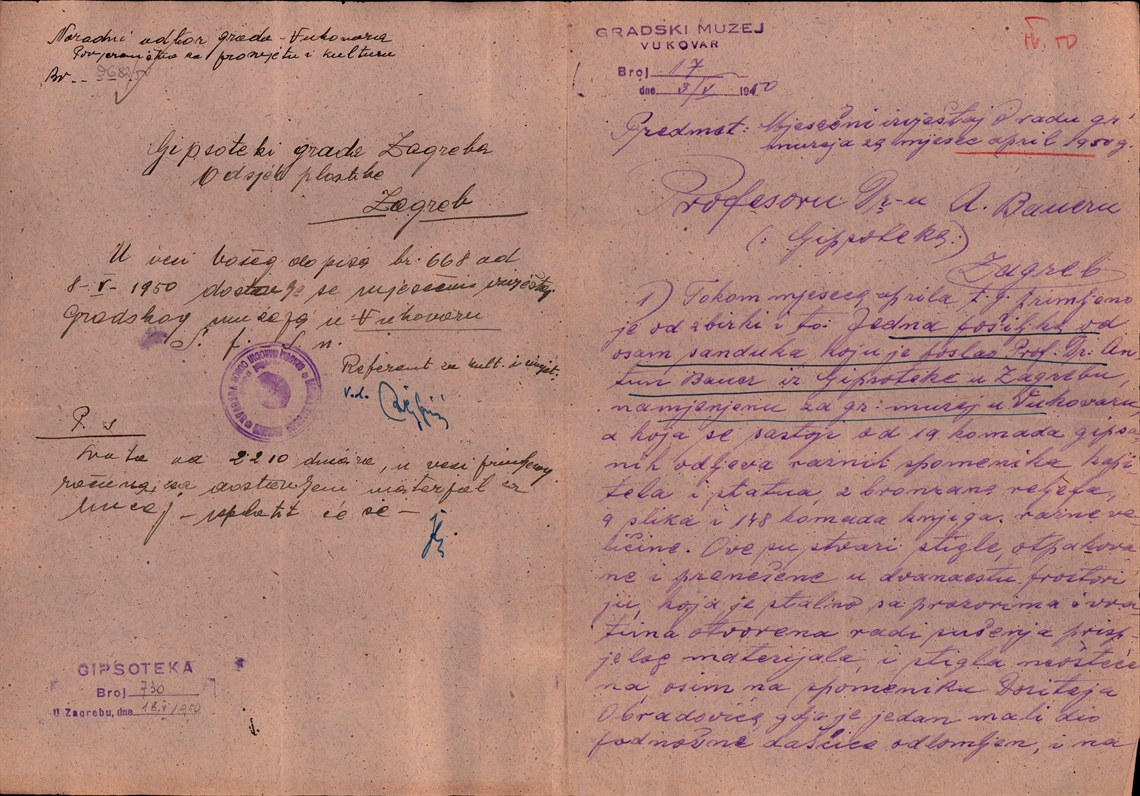 Narodni odbor grada Vukovara
Povjereništvo za prosvjetu i kulturu
Br.
Gipsoteki grada Zagreba
Odsjek plastike
Zagreb
U vezi Vašeg dopisa br. 668 od
8-V-1950 dostavlja se mjesečni izvještaj
Gradskog muzeja u Vukovaru
S. f. S. n.
Referent za kult. i umjet.
v.d.
P. S
Svota od 2210 dinara, u vezi
računa, za dostavljeni materijal za
muzej – isplatit će se –
GIPSOTEKA
Broj 730
U Zagrebu, dne 18.V.1950
GRADSKI MUZEJ
VUKOVAR
Broj 17
dne 3/V 1950
IV. 50
Predmet: Mjesečni izvještaj o radu gr.
muzeja za mjesec april 1950 g.
Profesoru Dr-u A. Baueru
(: Gipsoteka:)
Zagreb
1) Tokom mjeseca aprila t. g. primljeno
je od zbirki i to: Jedna pošiljka od
osam sanduka koju je poslao Prof. Dr. An-
tun Bauer iz Gipsoteke u Zagrebu,
namjenjenu za gr. muzej u Vukovaru,
a koja se sastoji od 19 komada gipsa-
nih odljeva raznih spomenika, kapi
tela i statua, 2 bronzana reljefa,
9 slika i 148 komada knjiga razne ve-
ličine. Ove su stvari stigle, otpakova-
ne i prenešene u dvanaestu prostori
ju, koja je stalno sa prozorima i vra
tima otvorena radi sušenja prisp-
jelog materijala, i stigla neošteće
na, osim na spomeniku Dositeja
Obradovića gdje je jedan mali dio
podnožne daščice odlomljen, i na